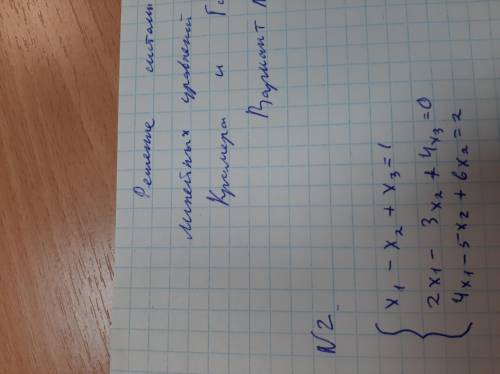 Решение систем
линейных уравнений
Крамера и Г
Вариант
N2.
x₁ - x₂ + x₃ = 1
2x₁ - 3x₂ + 4x₃ = 0
4x₁ - 5x₂ + 6x₂ = 2